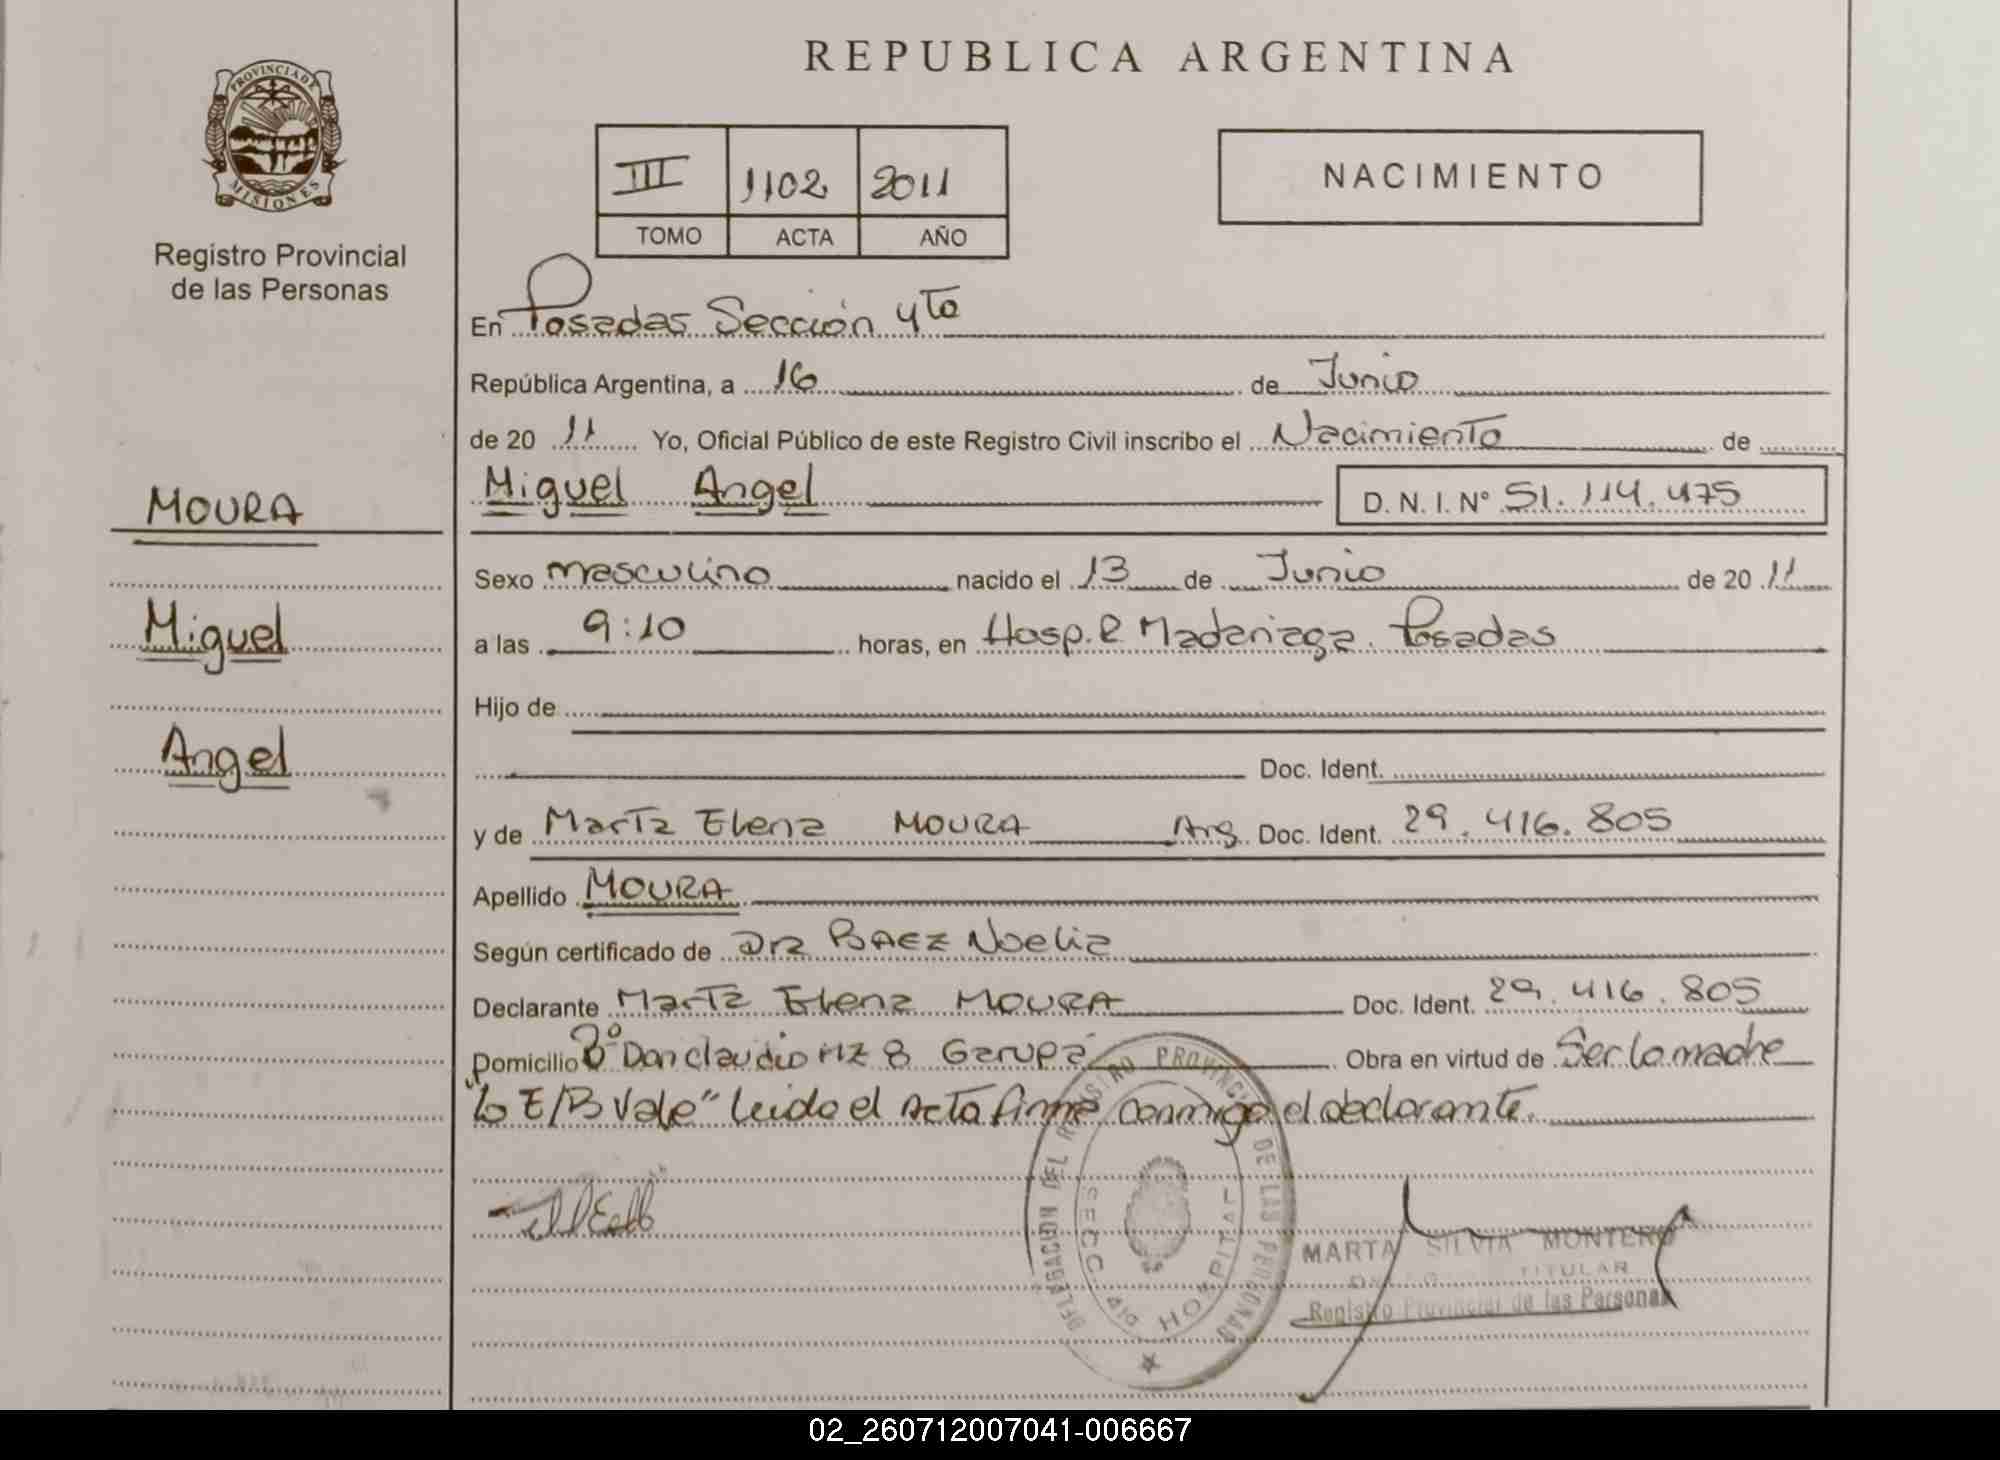 REPUBLICA ARGENTINA
PROVINCIA DE
MISIONES
Registro Provincial
de las Personas
III 1102 2011
TOMO ACTA AÑO
NACIMIENTO
En Posadas Sección 4to
República Argentina, a 16 de Junio
de 20 11 Yo, Oficial Público de este Registro Civil inscribo el Nacimiento de
Miguel Angel D. N. I. Nº 51.114.475
MOURA
Miguel
Angel
Sexo masculino nacido el 13 de Junio de 20 11
a las 9:10 horas, en Hosp. R Madariaga. Posadas
Hijo de
Doc. Ident.
y de Marta Elena MOURA Arg. Doc. Ident. 29.416.805
Apellido MOURA
Según certificado de Dra BAEZ Noelia
Declarante Marta Elena MOURA Doc. Ident. 29.416.805
Domicilio Bº Don claudio MZ 8 Garupá Obra en virtud de Ser la madre
"lo E/B Vale" leido el Acta firma conmigo el declarante.
DELEGACION DEL REGISTRO PROVINCIAL DE LAS PERSONAS
SECC. HOSPITAL
MARTA SILVIA MONTERO
TITULAR
Registro Provincial de las Personas
02_260712007041-006667